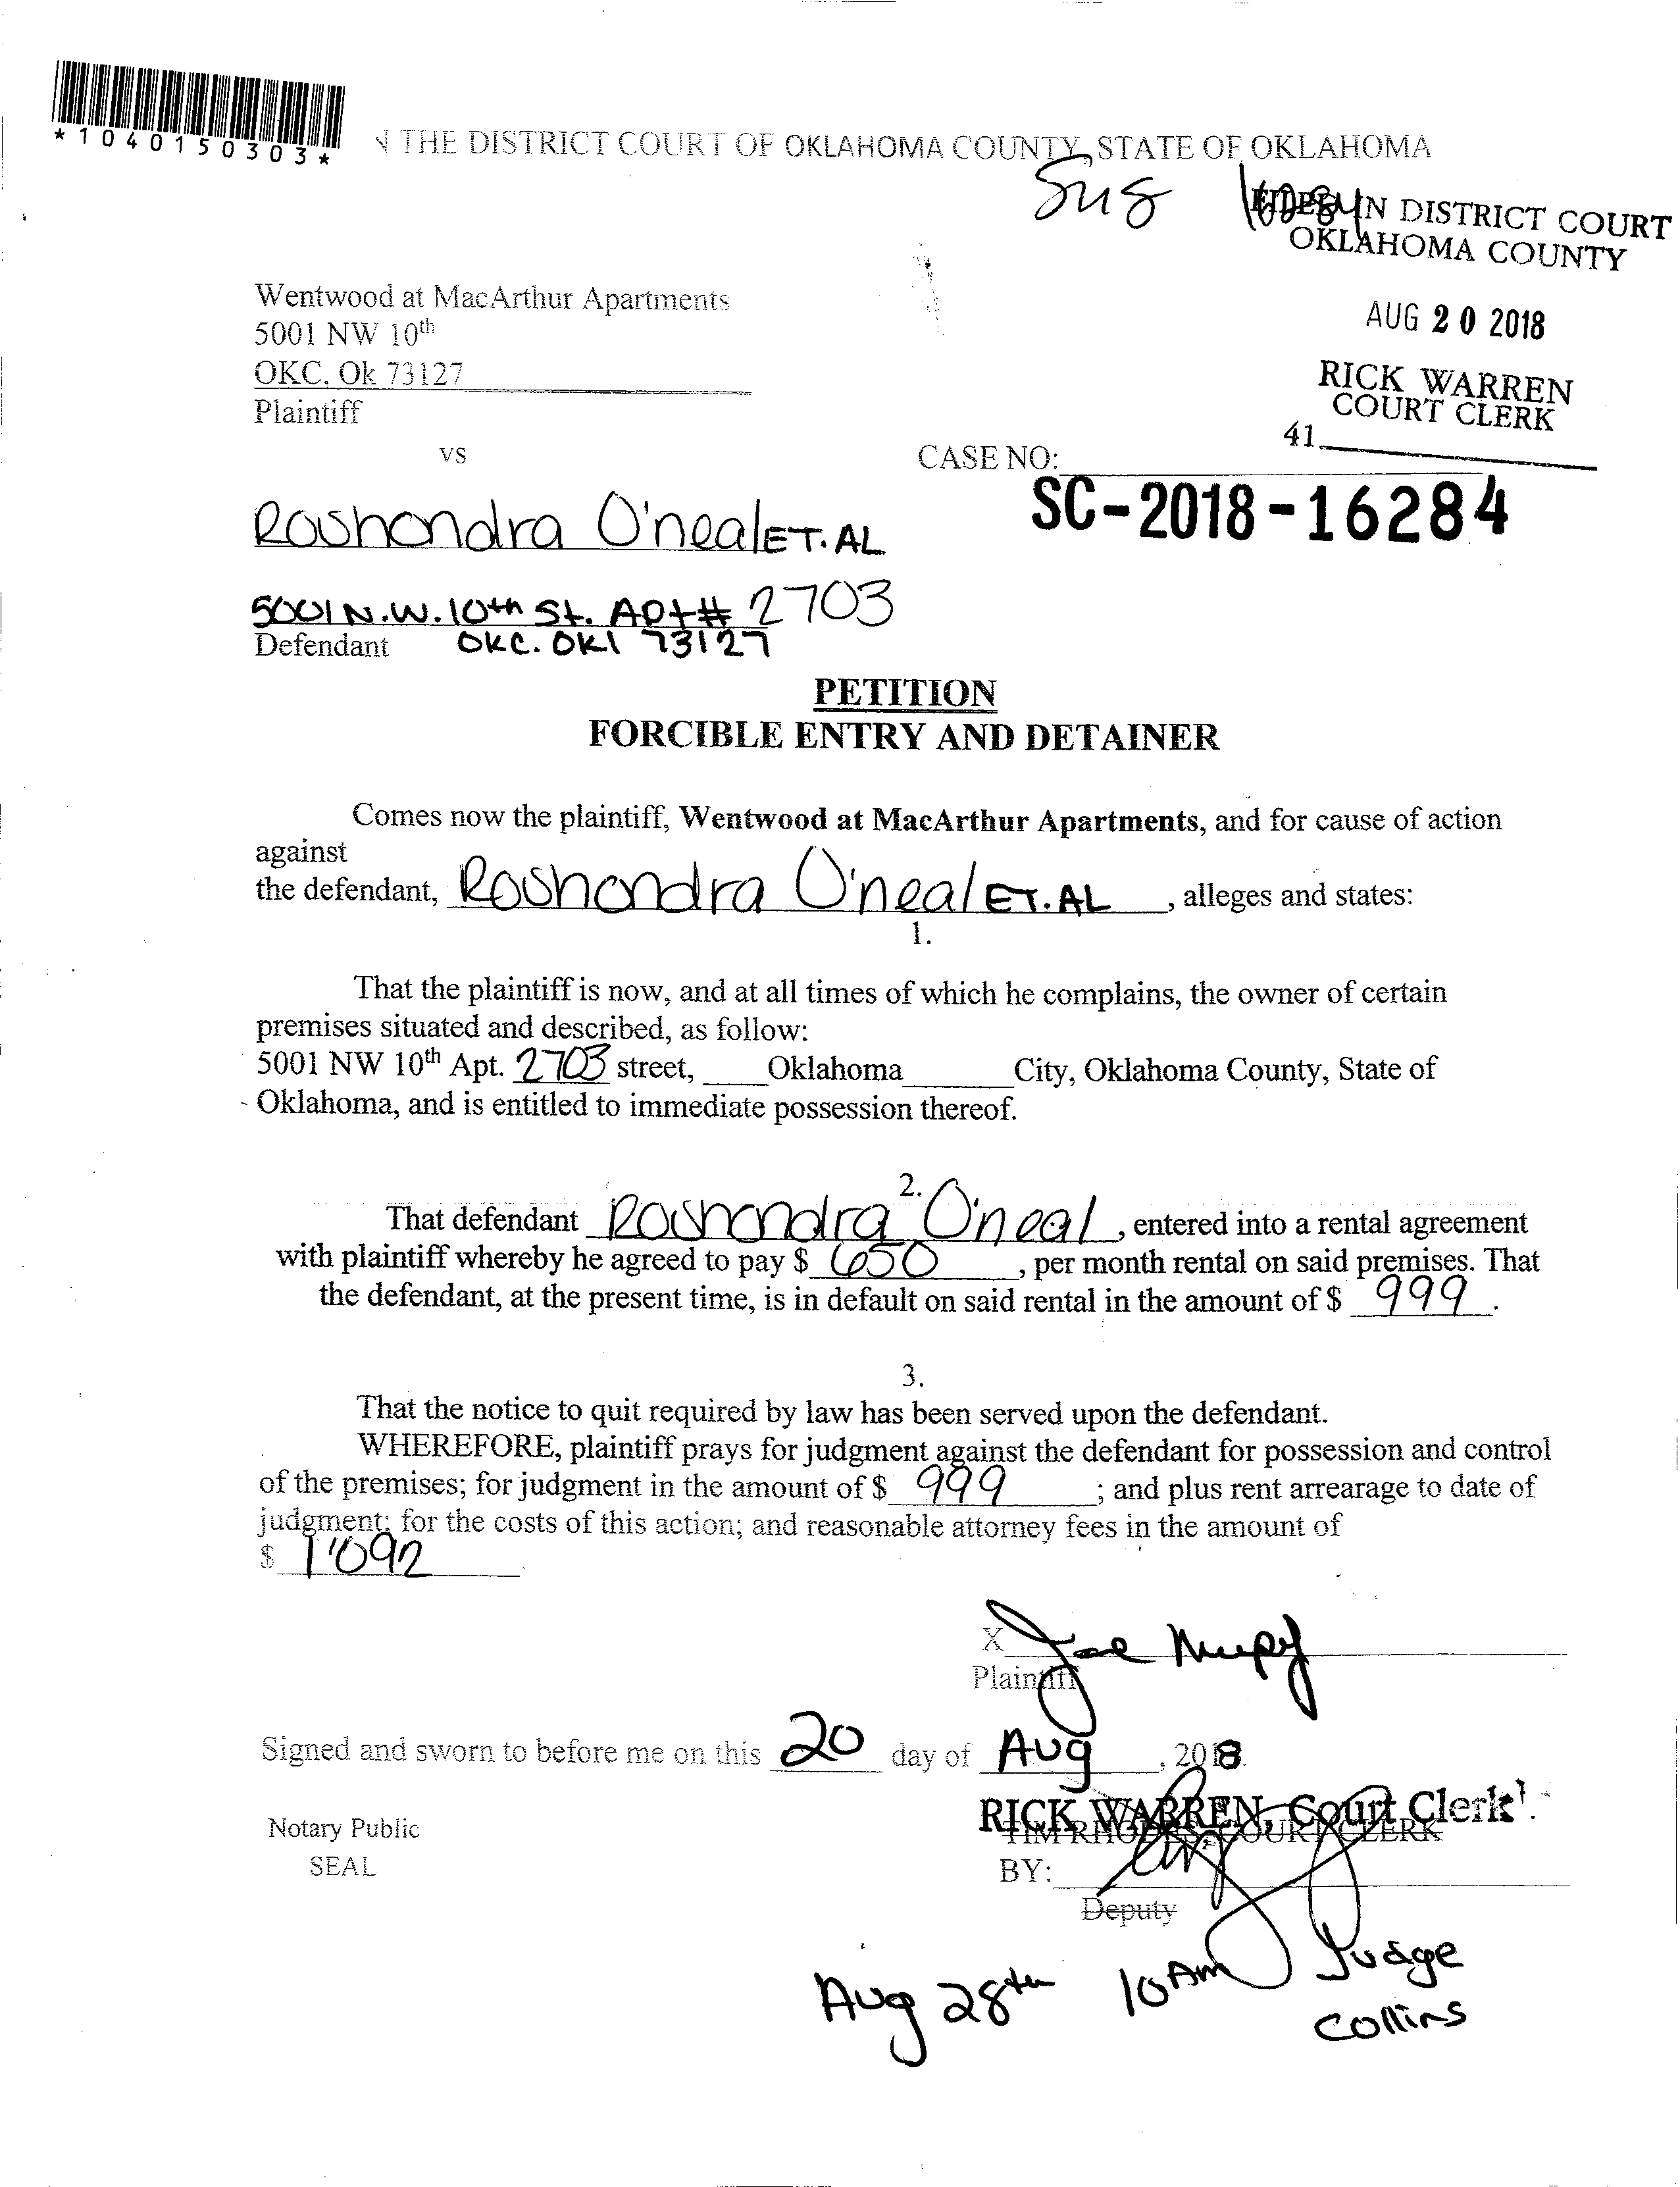 *1040150303*
N THE DISTRICT COURT OF OKLAHOMA COUNTY, STATE OF OKLAHOMA
FILED IN DISTRICT COURT
OKLAHOMA COUNTY
AUG 20 2018
RICK WARREN
COURT CLERK
41
Wentwood at MacArthur Apartments
5001 NW 10th
OKC, Ok 73127
Plaintiff
vs
CASE NO:
SC-2018-16284
Roshondra O'neal ET.AL
5001 N.W. 10th St. Apt# 2703
Defendant OKC. OKl 73127
PETITION
FORCIBLE ENTRY AND DETAINER
Comes now the plaintiff, Wentwood at MacArthur Apartments, and for cause of action
against
the defendant, Roshondra O'neal ET.AL, alleges and states:
1.
That the plaintiff is now, and at all times of which he complains, the owner of certain
premises situated and described, as follow:
5001 NW 10th Apt. 2703 street, Oklahoma City, Oklahoma County, State of
Oklahoma, and is entitled to immediate possession thereof.
2.
That defendant Roshondra O'neal, entered into a rental agreement
with plaintiff whereby he agreed to pay $ 650, per month rental on said premises. That
the defendant, at the present time, is in default on said rental in the amount of $ 999.
3.
That the notice to quit required by law has been served upon the defendant.
WHEREFORE, plaintiff prays for judgment against the defendant for possession and control
of the premises; for judgment in the amount of $ 999; and plus rent arrearage to date of
judgment; for the costs of this action; and reasonable attorney fees in the amount of
$ 1'092
X Joe
Plaintiff
Signed and sworn to before me on this 20 day of Aug, 2018.
RICK WARREN, Court Clerk
TIM RHODES, COURT CLERK
Notary Public
SEAL
BY:
Deputy
Aug 28th 10 AM Judge
Collins